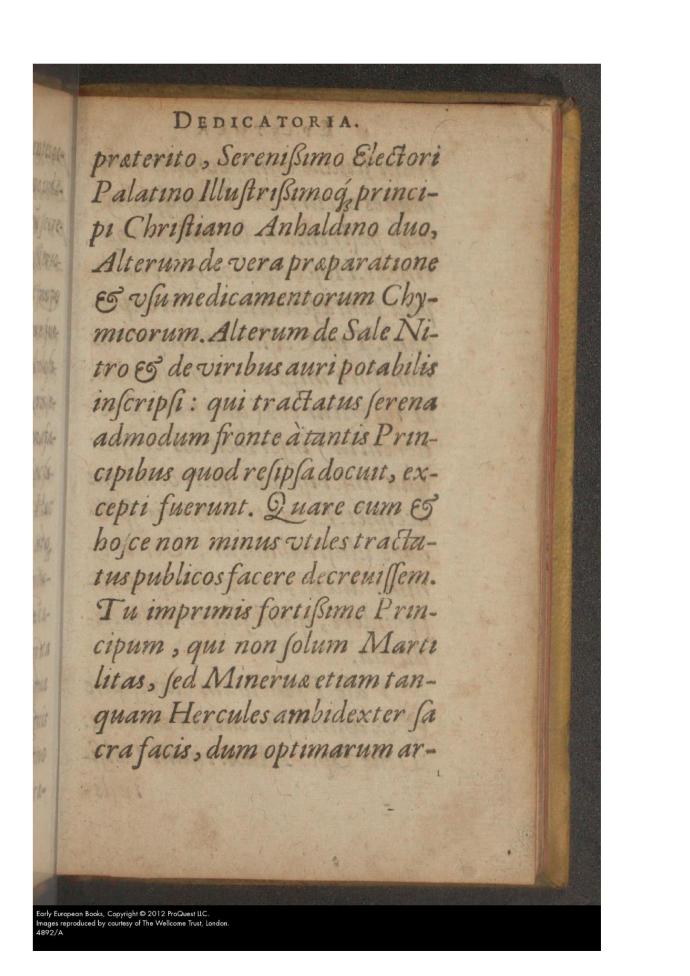 DEDICATORIA.
præterito, Serenißimo Electori
Palatino Illuſtrißimoq́; princi-
pi Chriſtiano Anhaldino duo,
Alterum de vera præparatione
& vſu medicamentorum Chy-
micorum. Alterum de Sale Ni-
tro & de viribus auri potabilis
inſcripſi: qui tractatus ſerena
admodum fronte à tantis Prin-
cipibus quod reſipſa docuit, ex-
cepti fuerunt. Quare cum &
hoſce non minus vtiles tracta-
tus publicos facere decreuiſſem.
Tu imprimis fortißime Prin-
cipum, qui non ſolum Marti
litas, ſed Mineruæ etiam tan-
quam Hercules ambidexter ſa
cra facis, dum optimarum ar-
Early European Books, Copyright © 2012 ProQuest LLC.
Images reproduced by courtesy of The Wellcome Trust, London.
4892/A